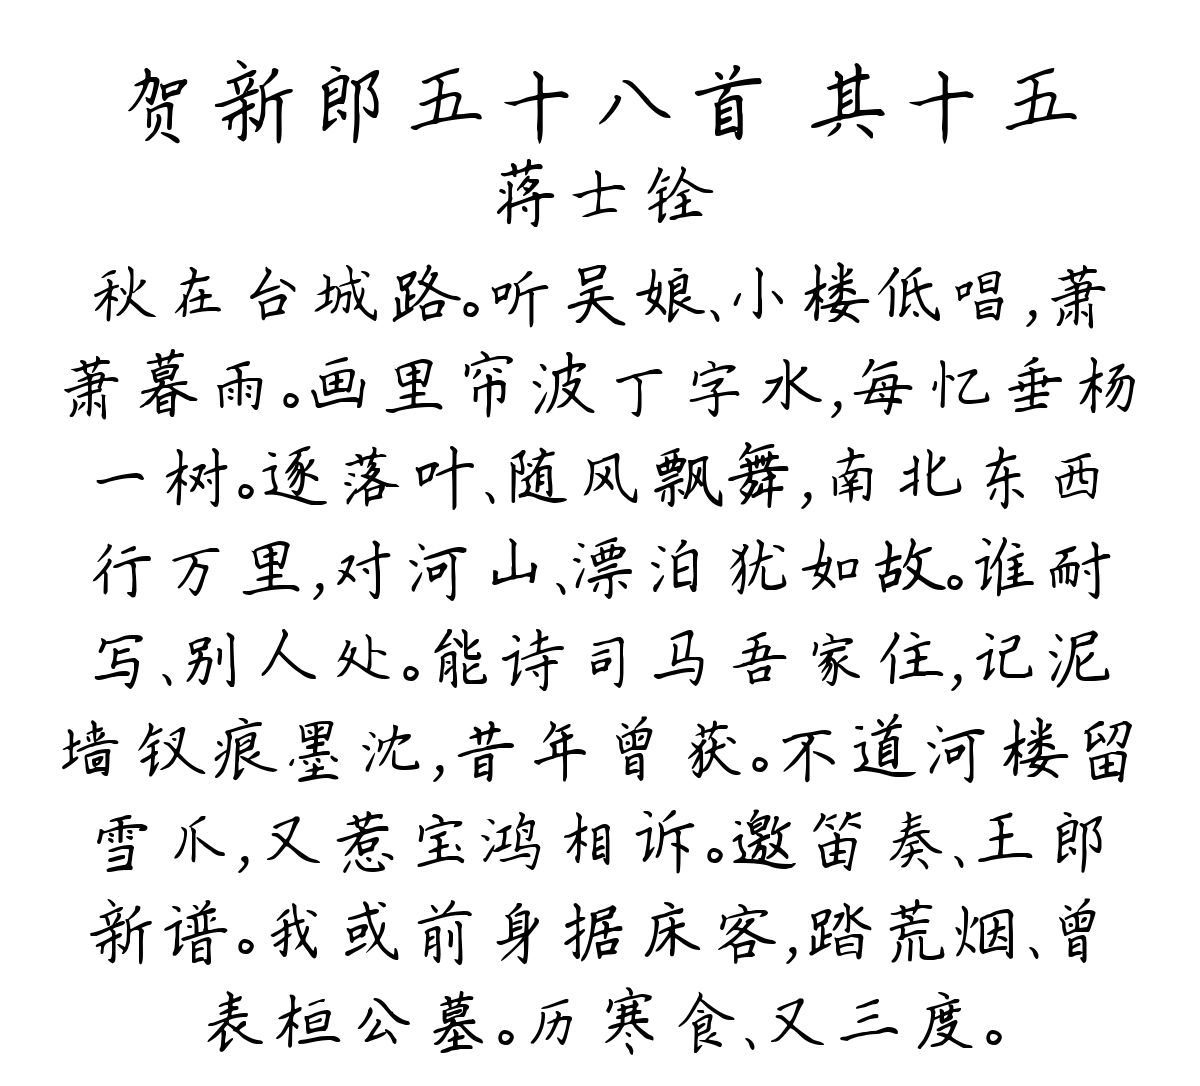 贺新郎五十八首 其十五
蒋士铨
秋在台城路。听吴娘、小楼低唱,萧
萧暮雨。画里帘波丁字水,每忆垂杨
一树。逐落叶、随风飘舞,南北东西
行万里,对河山、漂泊犹如故。谁耐
写、别人处。能诗司马吾家住,记泥
墙钗痕墨沈,昔年曾获。不道河楼留
雪爪,又惹宝鸿相诉。邀笛奏、王郎
新谱。我或前身据床客,踏荒烟、曾
表桓公墓。历寒食、又三度。